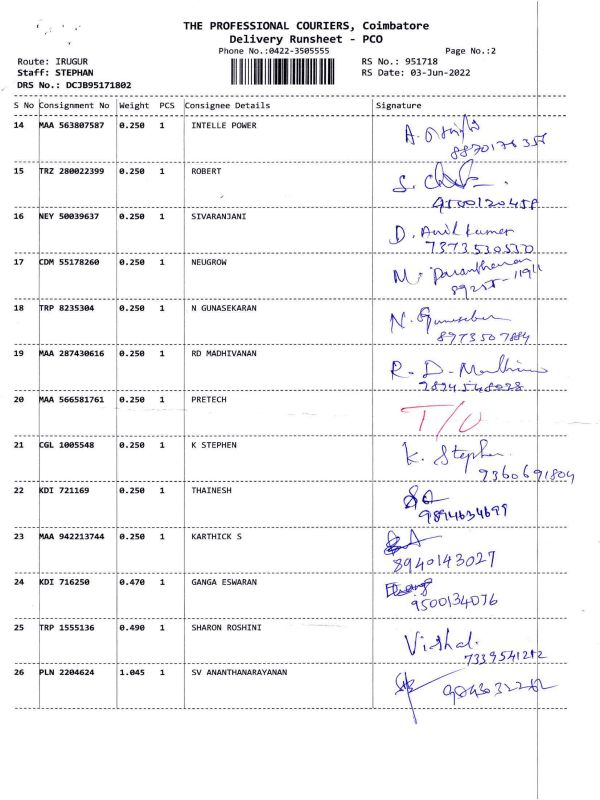 THE PROFESSIONAL COURIERS, Coimbatore
Delivery Runsheet - PCO
Phone No.:0422-3505555
Page No.:2
Route: IRUGUR
RS No.: 951718
Staff: STEPHAN
RS Date: 03-Jun-2022
DRS No.: DCJB95171802
S No Consignment No Weight PCS Consignee Details Signature
14 MAA 563807587 0.250 1 INTELLE POWER A.
15 TRZ 280022399 0.250 1 ROBERT S.
9500120458
16 NEY 50039637 0.250 1 SIVARANJANI D. Anil kumar
7373530530
17 CDM 55178260 0.250 1 NEUGROW M.
18 TRP 8235304 0.250 1 N GUNASEKARAN N. Gunasekaran
8973507884
19 MAA 287430616 0.250 1 RD MADHIVANAN R. D.
20 MAA 566581761 0.250 1 PRETECH T/O
21 CGL 1005548 0.250 1 K STEPHEN K. Stephen
9360691804
22 KDI 721169 0.250 1 THAINESH
9894634699
23 MAA 942213744 0.250 1 KARTHICK S
8940143027
24 KDI 716250 0.470 1 GANGA ESWARAN
9500134076
25 TRP 1555136 0.490 1 SHARON ROSHINI Vishal.
26 PLN 2204624 1.045 1 SV ANANTHANARAYANAN